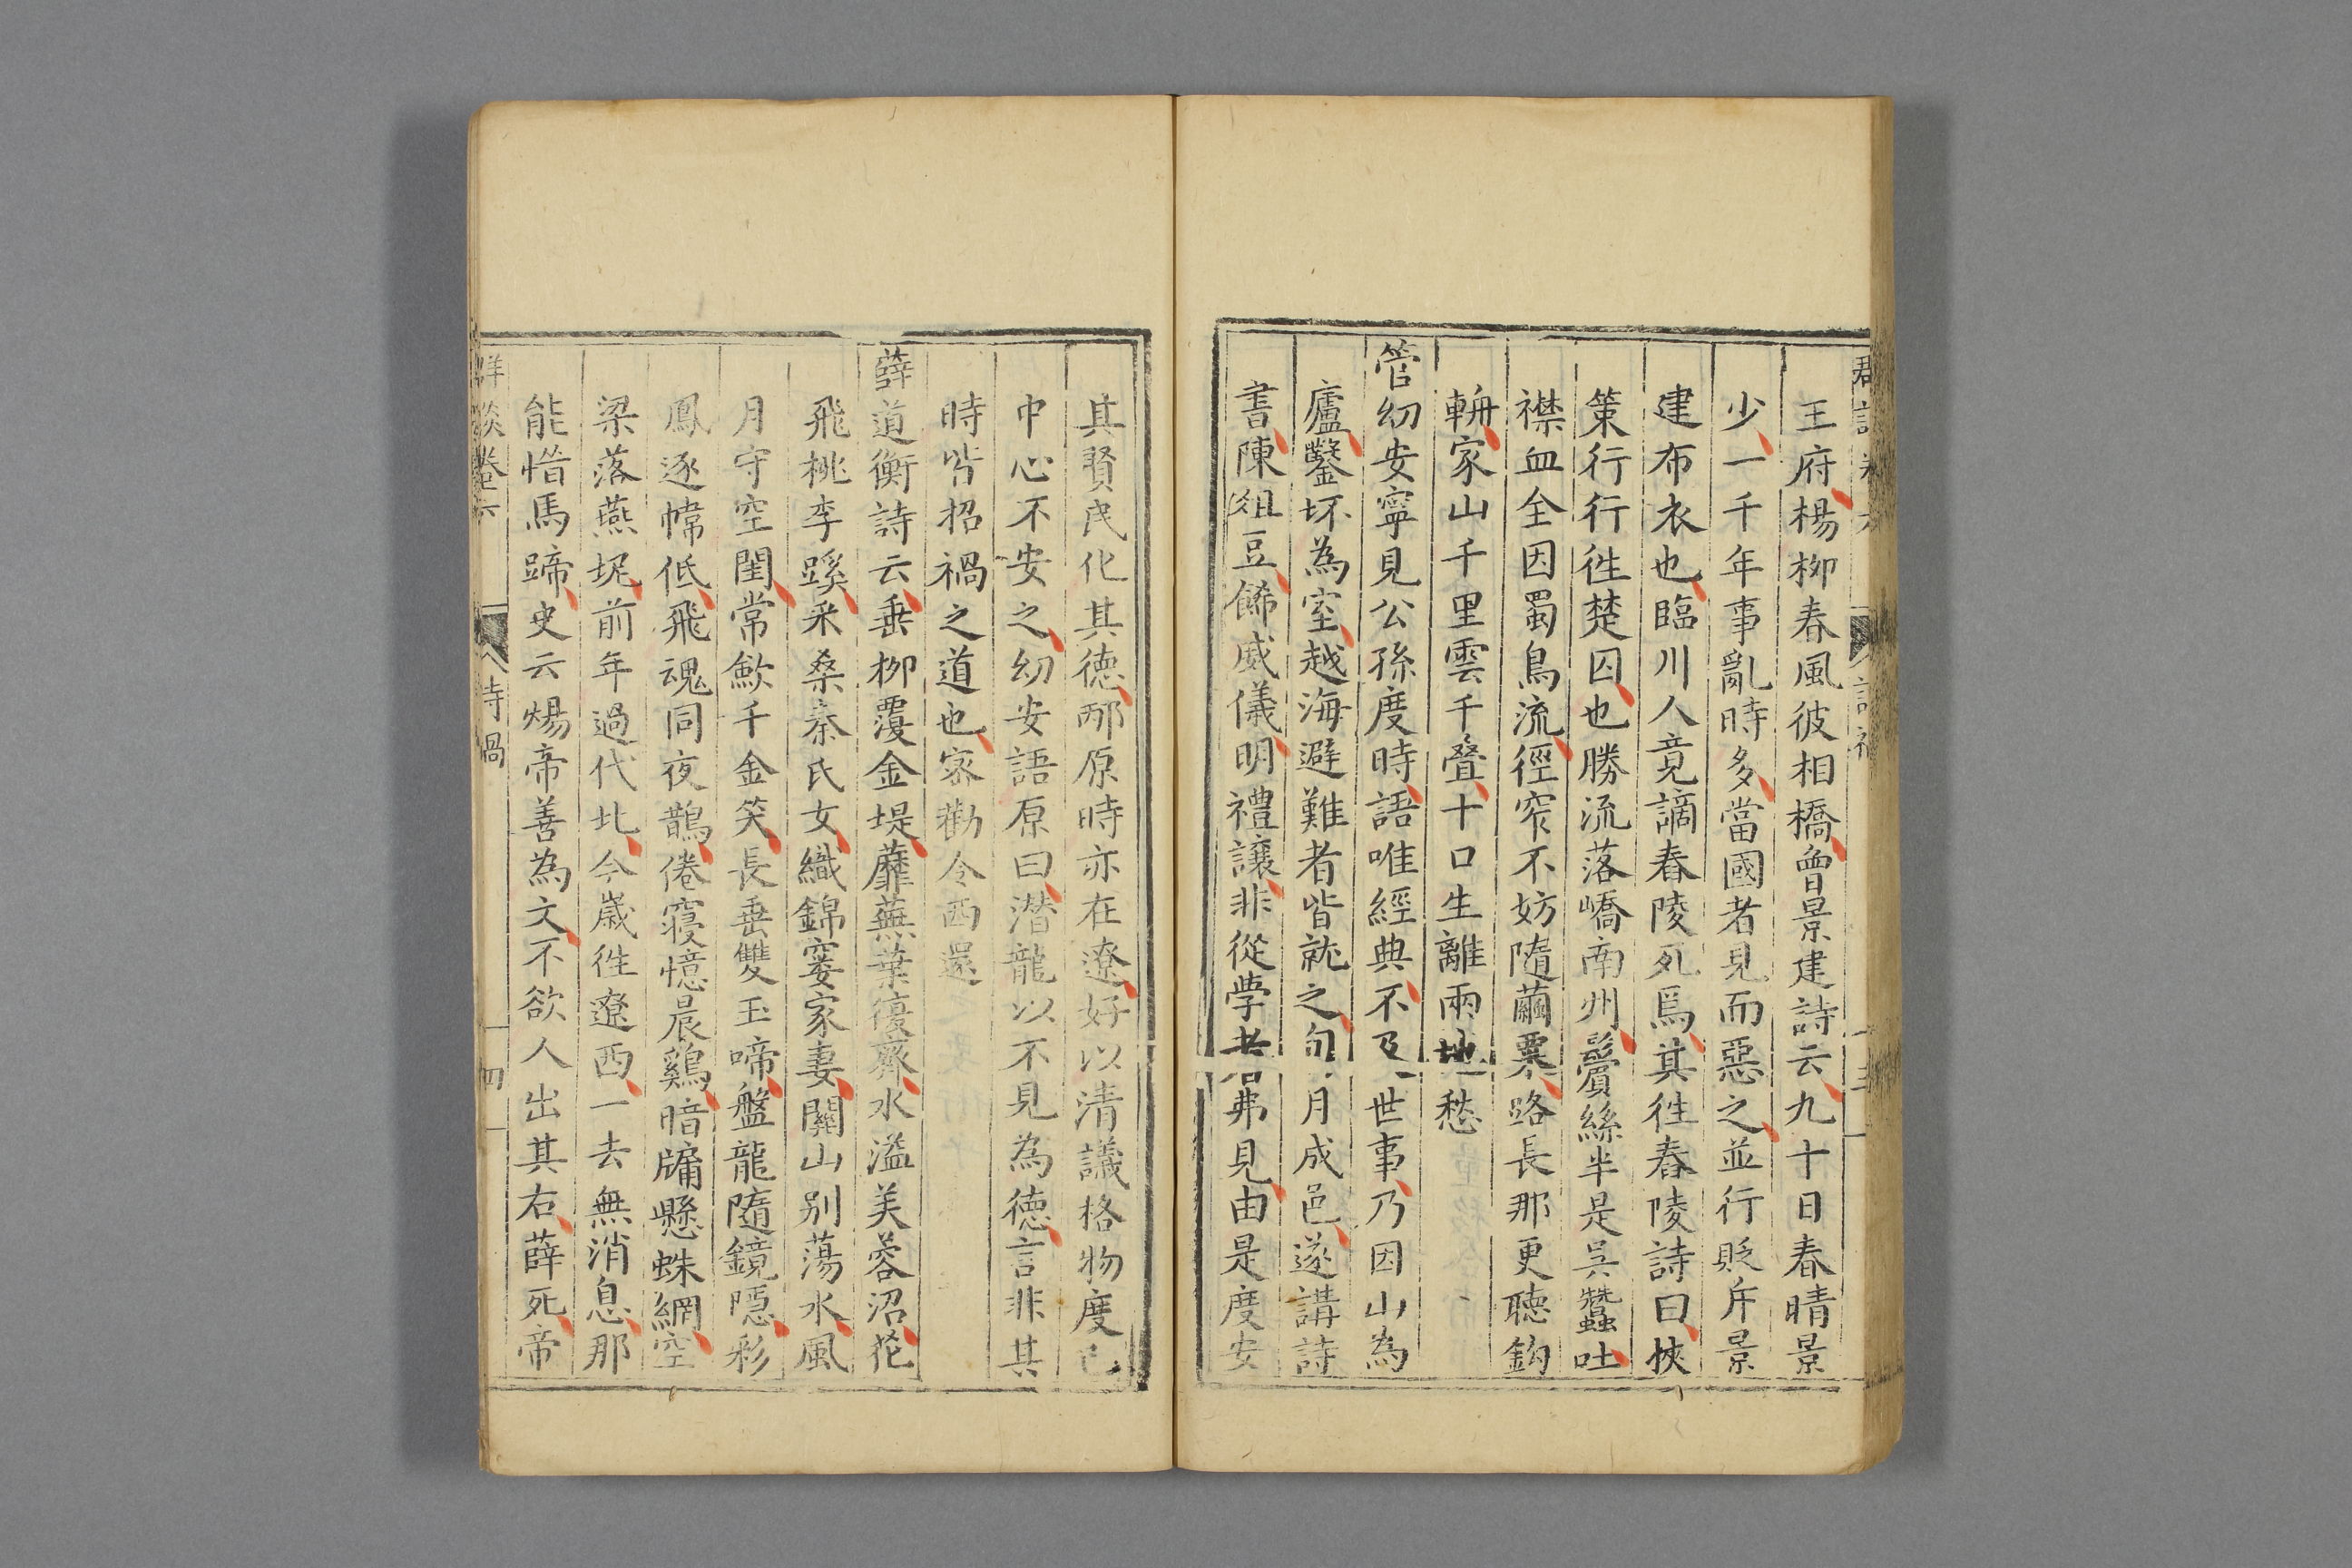 王府楊柳春風彼相橋曾景建詩云九十日春晴景
少一千年事亂時多當國者見而惡之並行貶斥景
建布衣也臨川人竟謫舂陵死焉其徃舂陵詩曰挾
策行行行徃楚囚也勝流落嶠南州鬢絲半是吳蠶吐
襟血全因蜀鳥流徑窄不妨隨繭粟路長那更聽鈎
輈家山千里雲千叠十口生離兩地愁
管幼安寧見公孫度時語唯經典不及世事乃因山為
廬鑿坏為室越海避難者皆就之旬月成邑遂講詩
書陳俎豆餙威儀明禮讓非從學者弗見由是度安
其賢民化其德邴原時亦在遼好以清議格物度已
中心不安之幼安語原曰潜龍以不見為德言非其
時皆招禍之道也宻勸令西還
薛道衡詩云垂柳覆金堤蘼蕪葉復齊水溢芙蓉沼花
飛桃李蹊采桑秦氏女織錦竇家妻關山别蕩水風
月守空閨常歛千金笑長垂雙玉啼盤龍隨鏡隱彩
鳳逐幃低飛魂同夜鵲倦寢憶晨鷄暗牖懸蛛網空
梁落燕坭前年過代北今歲徃遼西一去無消息那
能惜馬蹄史云煬帝善為文不欲人出其右薛死帝
詩禍
四